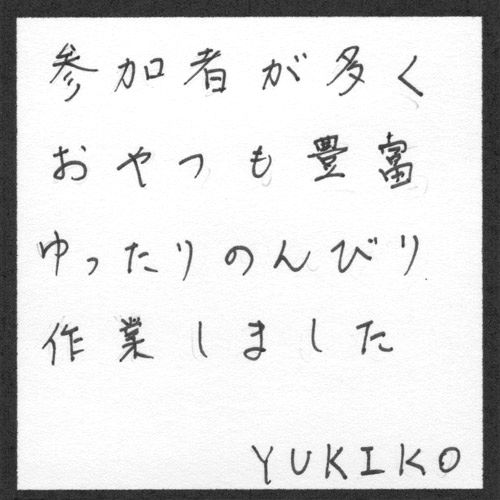 参加者が多く
おやつも豊富
ゆったりのんびり
作業しました
YUKIKO